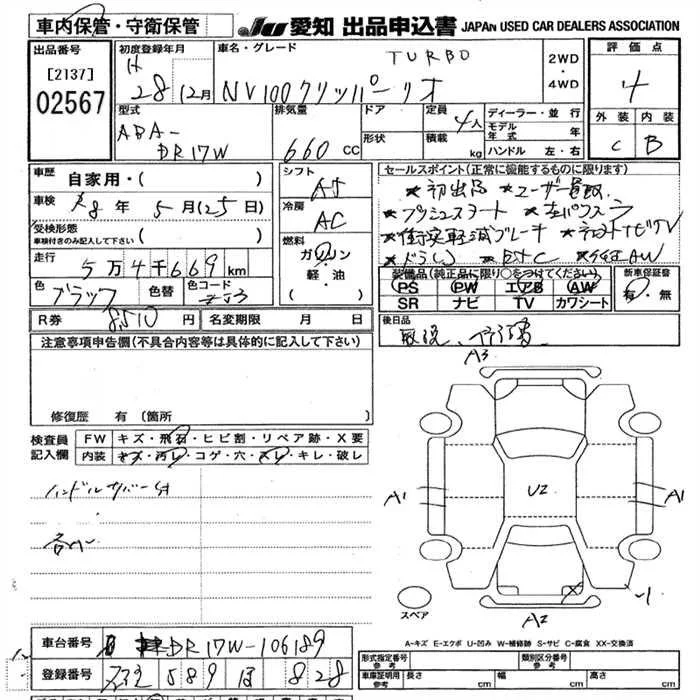 車内保管・守衛保管
JU 愛知 出品申込書 JAPAN USED CAR DEALERS ASSOCIATION
出品番号
[2137]
02567
初度登録年月
H 28 12月
車名・グレード
TURBO
NV100クリッパーリオ
2WD
・
4WD
評価点
4
外装 内装
C B
型式
ABA-
DR17W
排気量
660 CC
ドア
形状
定員 4人
積載 kg
ディーラー・並行
モデル年式 年
ハンドル 左・右
車歴
自家用・( )
車検
R8年 5月(25日)
受検形態
車検付きのみ記入して下さい ( )
走行
5万4千669km
色 ブラック
色替
色コード
R券 8510円
名変期限 月 日
シフト
AT
冷房
AC
燃料
ガソリン
軽・油
( )
セールスポイント(正常に機能するものに限ります)
★初出品 ★ユーザー買取
★プッシュスタート
★衝突軽減ブレーキ TV
AW
装備品(純正品に限り○をつけてください)
PS PW エアB AW
SR ナビ TV カワシート
新車保証書
有・無
後日品
注意事項申告欄(不具合内容等は具体的に記入して下さい)
修復歴 有 (箇所 )
検査員記入欄
FW キズ・飛石・ヒビ割・リペア跡・X要
内装 キズ・汚レ・コゲ・穴・スレ・キレ・破レ
ハンドルカバー付
A3
A1
U2
A1
A2
スペア
A-キズ E-エクボ U-凹み W-補修跡 S-サビ C-腐食 XX-交換済
車台番号
DR17W-106189
登録番号
589 828
形式指定番号
参考
類別区分番号
参考
車庫証明用
参考
長さ cm 幅 cm 高さ cm